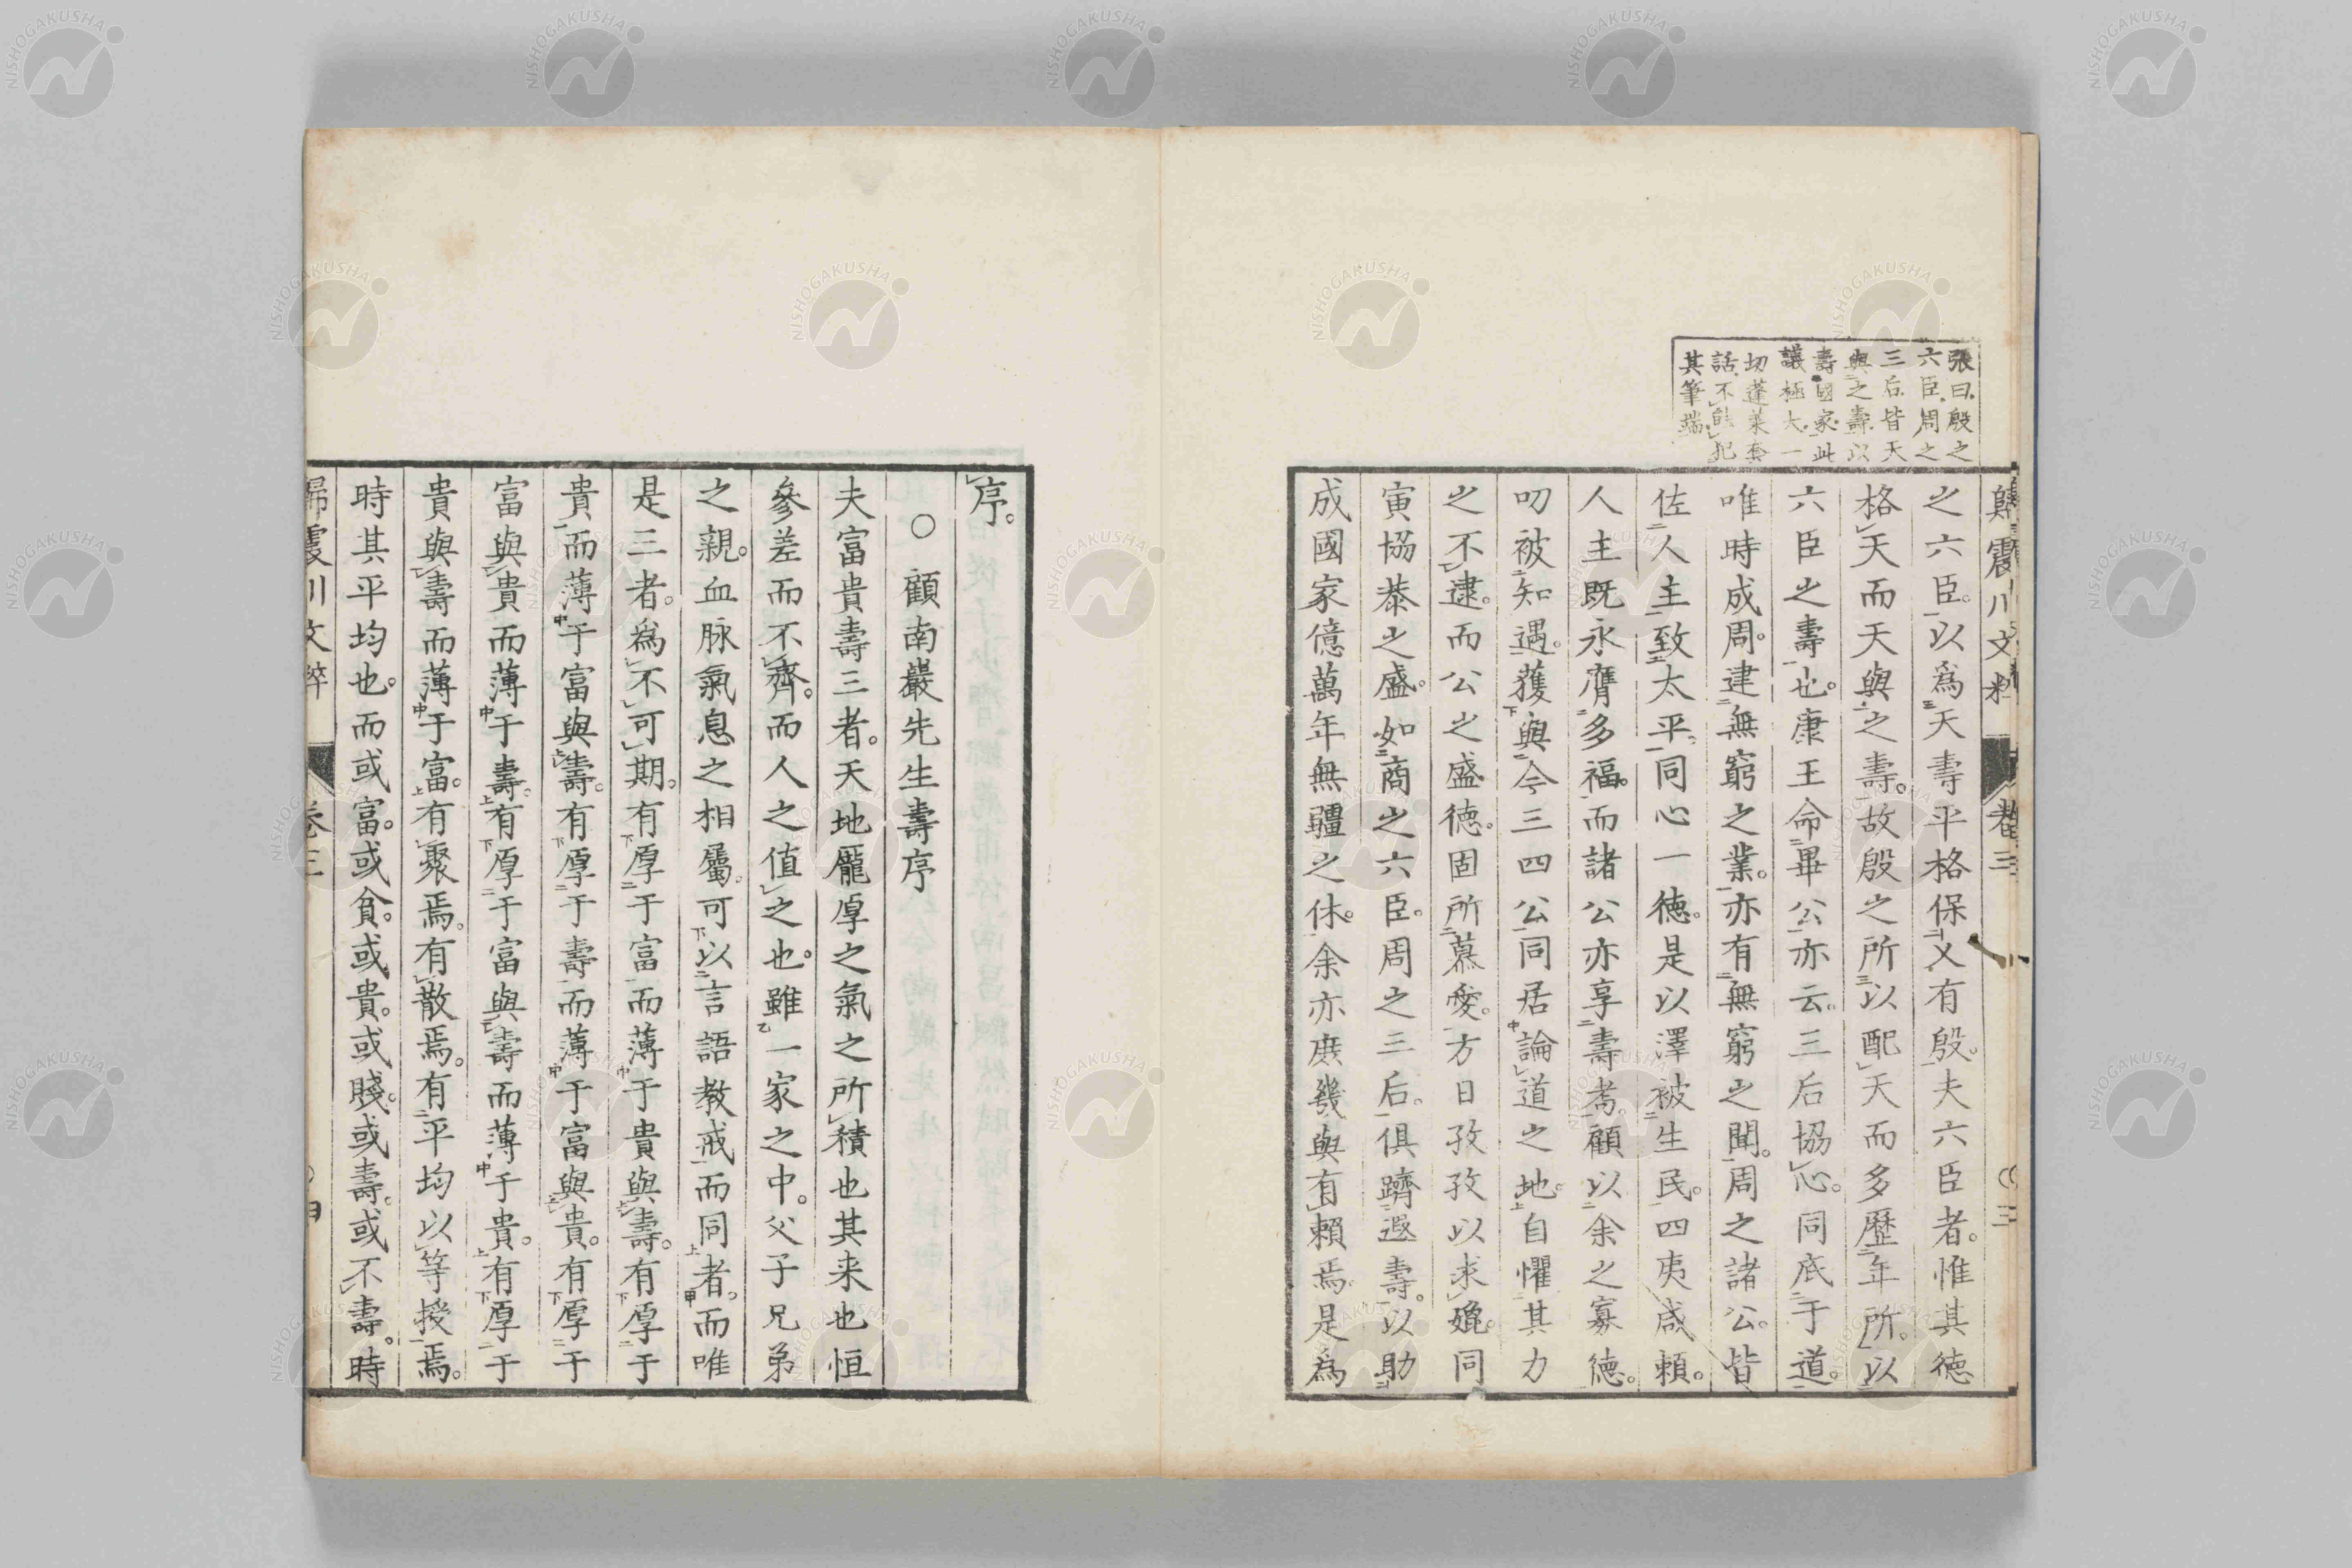 張曰殷之
六臣周之
三后皆天
與之壽以
壽國家此
議極大一
切蓬萊套
話不能犯
其筆端
歸震川文粹 卷三 三
之六臣。以爲天壽平格保乂有殷。夫六臣者。惟其德
格天而天與之壽。故殷之所以配天而多歷年所。以
六臣之壽也。康王命畢公亦云。三后協心。同底于道。
唯時成周。建無窮之業。亦有無窮之聞。周之諸公。皆
佐人主致太平。同心一德。是以澤被生民。四夷咸賴。
人主既永膺多福。而諸公亦享壽耉。顧以余之寡德。
叨被知遇。獲與今三四公同居論道之地。自懼其力
之不逮。而公之盛德。固所慕愛。方日孜孜以求媲。同
寅協恭之盛。如商之六臣。周之三后。俱躋遐壽。以助
成國家億萬年無疆之休。余亦庶幾與有賴焉。是爲
序。
○顧南巖先生壽序
夫富貴壽三者。天地龐厚之氣之所積也其来也恒
參差而不齊。而人之值之也。雖一家之中。父子兄弟
之親。血脉氣息之相屬。可以言語教戒而同者。而唯
是三者。爲不可期。有厚于富而薄于貴與壽。有厚于
貴而薄于富與壽。有厚于壽而薄于富與貴。有厚于
富與貴而薄于壽。有厚于富與壽而薄于貴。有厚于
貴與壽而薄于富。有聚焉。有散焉。有平均以等授焉。
時其平均也。而或富。或貧。或貴。或賤。或壽。或不壽。時
歸震川文粹 卷三
NISHOGAKUSHA